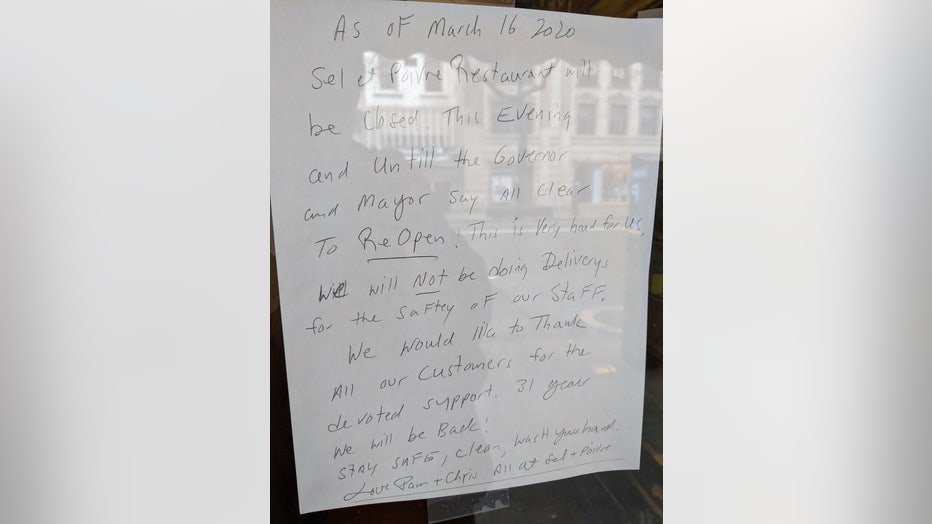 As of March 16 2020
Sel et Poivre Restaurant will
be Closed. This Evening
and Untill the Governor
and Mayor say All Clear
To ReOpen! This is Very hard for us,
We will Not be doing Deliverys
for the Saftey of our Staff.
We would like to Thank
All our Customers for the
devoted support. 31 year
We will be Back!
STAY SAFE, Clean, wash your hand.
Love Pam + Chris All at Sel + Poivre